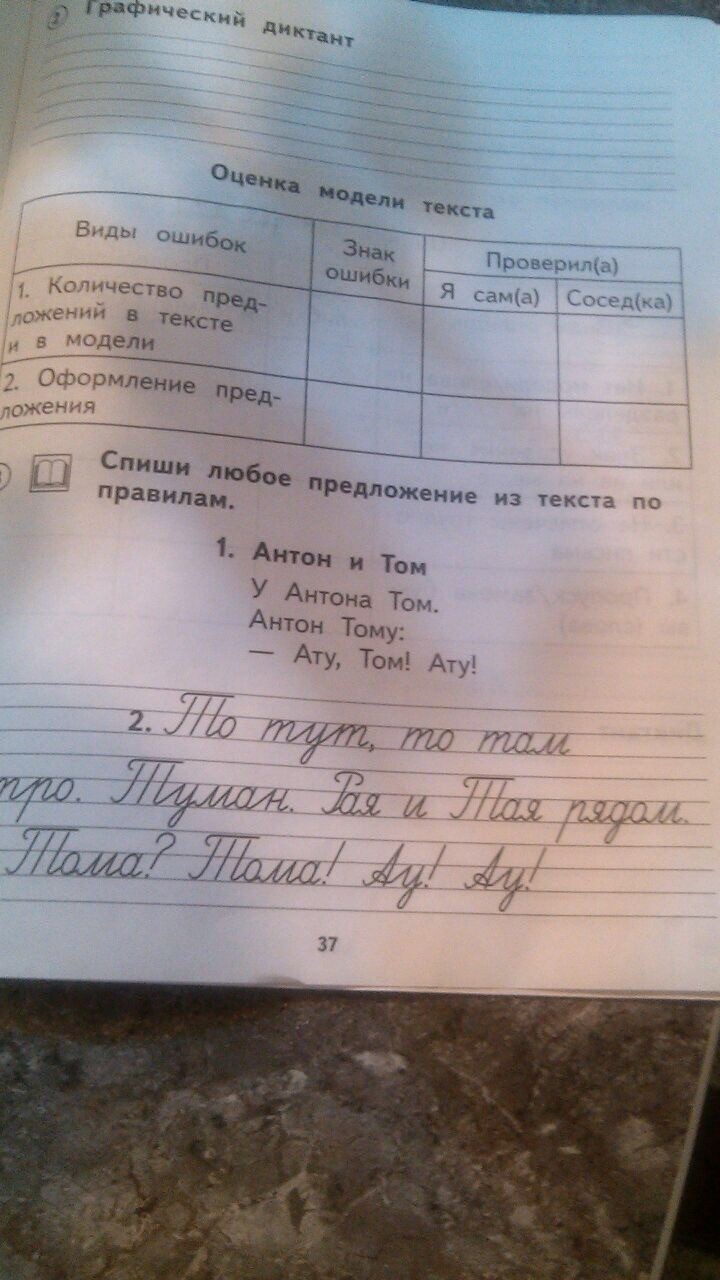 2 Графический диктант
Оценка модели текста
Виды ошибок
Знак
ошибки
Проверил(а)
Я сам(а)
Сосед(ка)
1. Количество пред-
ложений в тексте
и в модели
2. Оформление пред-
ложения
Спиши любое предложение из текста по
правилам.
1. Антон и Том
У Антона Том.
Антон Тому:
— Ату, Том! Ату!
2. То тут, то там
тро. Туман. Рая и Тая рядом.
Тома? Тома! Ау! Ау!
37